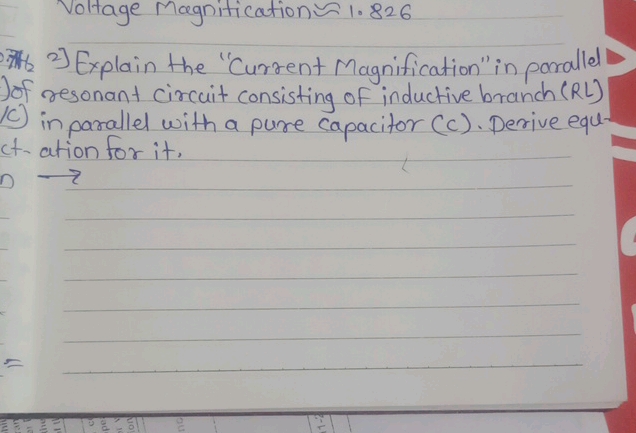 Voltage Magnification ≈ 1.826
2) Explain the "Current Magnification" in parallel
)of resonant circuit consisting of inductive branch (RL)
/c) in parallel with a pure capacitor (C). Derive equ-
ct- ation for it.
n →
=